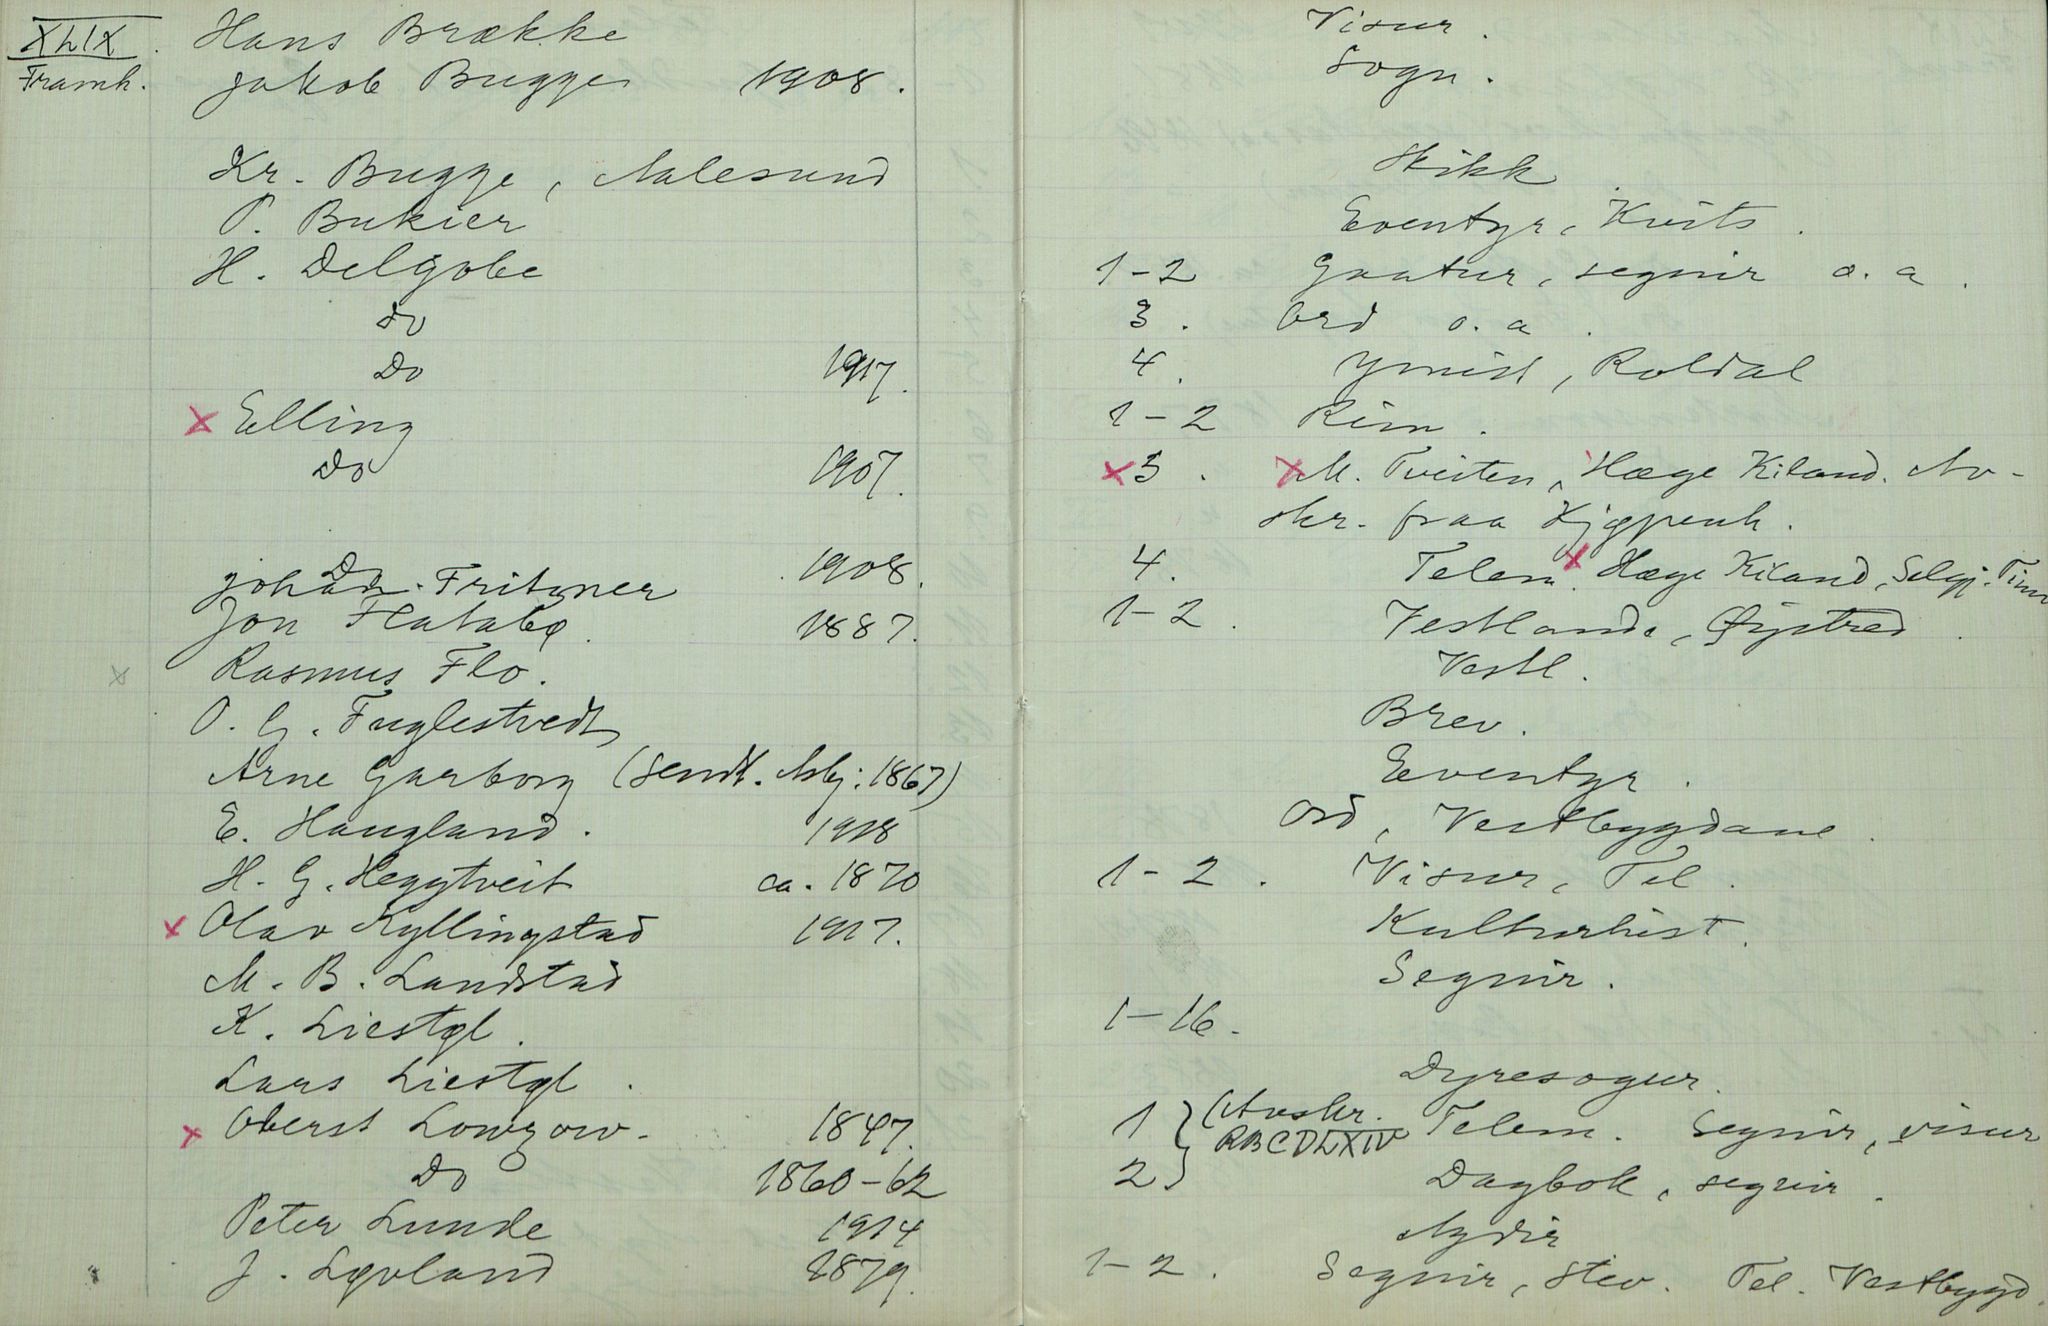 XLIX. Hans Brække Visur.
Framh. Jakob Bugge 1908. Sogn.
Kr. Bugge, Aalesund Skikk.
P. Bukier Eventyr, Kvits.
H. Delgobe 1-2 Gaatur, segnir o. a.
Do 3. Ord o. a.
Do 1917. 4. Ymist, Røldal
x Elling 1-2 Rim.
Do 1907. x 3. x M. Tveiten, Hæge Kiland. Av-
skr. fraa Kjøpenh.
Do 1908. 4. Telem. x Hæge Kiland, Selgj. Tinn
Johan Fritzner 1-2. Vestlandi, Øystred.
Jon Flatabø. 1887. Vestl.
x Rasmus Flo. Brev.
O. G. Fuglestvedt Eventyr.
Arne Garborg (sendt. Asbj. 1867) Ord, Vestbygdane.
E. Haugland. 1918
H. G. Heggtveit ca. 1870 1-2. Visur, Tel.
x Olav Kyllingstad 1917. Kulturhist.
M. B. Landstad Segnir.
K. Liestøl. 1-16.
Lars Liestøl. Dyresogur.
x Oberst Lowzow. 1847. 1 } (Avskr. RBCDLXIV Telem. Segnir, visur
Do 1860-62 2 } Dagbok, segnir.
Peter Lunde 1914 Agdir
J. Løvland 1879. 1-2. Segnir, Stev. Tel. Vestbygd.